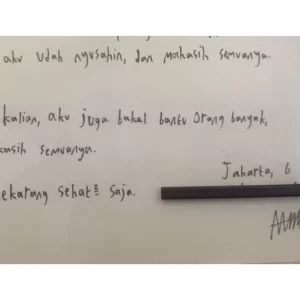 aku udah nyusahin, dan makasih semuanya.
kalian, aku juga bakal bantu orang banyak,
kasih semuanya.
Jakarta, 6
ekarang sehat² saja.